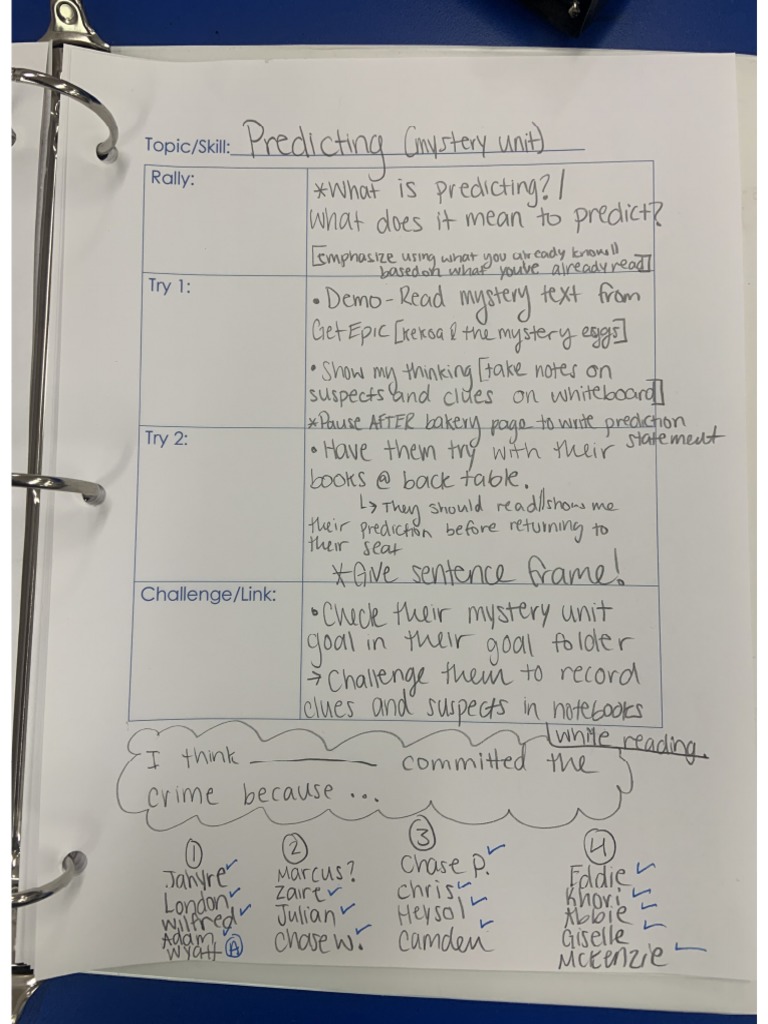 Topic/Skill: Predicting (mystery unit)
Rally:
*What is predicting?/
What does it mean to predict?
[Emphasize using what you already know//
based on what you've already read]
Try 1:
• Demo - Read mystery text from
GetEpic [Kekoa & the mystery eggs]
• Show my thinking [take notes on
suspects and clues on whiteboard]
*Pause AFTER bakery page to write prediction
statement
Try 2:
• Have them try with their
books @ back table.
↳ They should read//show me
their prediction before returning to
their seat
*Give sentence frame!
Challenge/Link:
• Check their mystery unit
goal in their goal folder
→ Challenge them to record
clues and suspects in notebooks
while reading.
I think __________ committed the
crime because ...
① 
Jahyre ✓
London ✓
Wilfred ✓
Adam ✓
Wyatt Ⓐ
②
Marcus?
Zaire ✓
Julian ✓
Chase W. ✓
③
Chase P. ✓
Chris ✓
Heysol ✓
Camden ✓
④
Eddie ✓
Khori ✓
Abbie ✓
Giselle ✓
McKenzie ✓